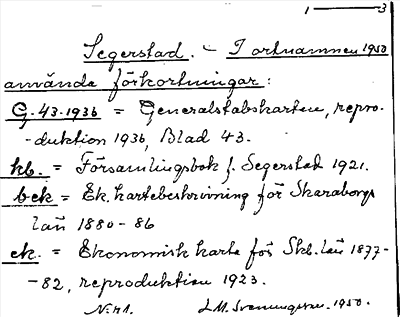 1 — 3
Segerstad. - I ortnamnen 1950
använda förkortningar:
G. 43-1936 = Generalstabskarten, repro-
-duktion 1936, Blad 43.
kb. = Församlingsbok f. Segerstad 1921.
bek = Ek. kartebeskrivning för Skaraborgs
län 1880-86
ek. = Ekonomisk karta för Skb. län 1877-
-82, reproduktion 1923.
1950.